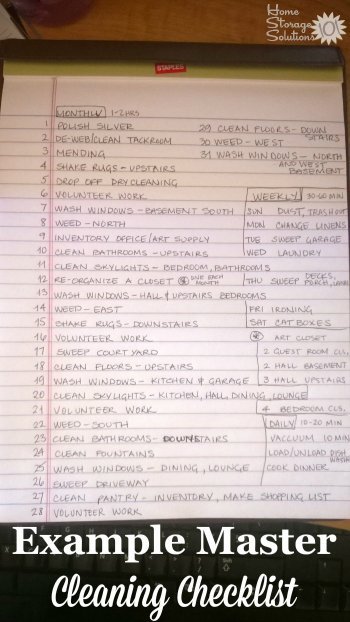 Home
Storage
Solutions
STAPLES
MONTHLY 1-2 HRS
1 POLISH SILVER
2 DE-WEB/CLEAN TACKROOM
3 MENDING
4 SHAKE RUGS - UPSTAIRS
5 DROP OFF DRYCLEANING
6 VOLUNTEER WORK
7 WASH WINDOWS - BASEMENT SOUTH
8 WEED - NORTH
9 INVENTORY OFFICE/ART SUPPLY
10 CLEAN BATHROOMS - UPSTAIRS
11 CLEAN SKYLIGHTS - BEDROOM, BATHROOMS
12 RE-ORGANIZE A CLOSET * ONE EACH MONTH
13 WASH WINDOWS - HALL & UPSTAIRS BEDROOMS
14 WEED - EAST
15 SHAKE RUGS - DOWNSTAIRS
16 VOLUNTEER WORK
17 SWEEP COURTYARD
18 CLEAN FLOORS - UPSTAIRS
19 WASH WINDOWS - KITCHEN & GARAGE
20 CLEAN SKYLIGHTS - KITCHEN, HALL, DINING, LOUNGE
21 VOLUNTEER WORK
22 WEED - SOUTH
23 CLEAN BATHROOMS - DOWNSTAIRS
24 CLEAN FOUNTAINS
25 WASH WINDOWS - DINING, LOUNGE
26 SWEEP DRIVEWAY
27 CLEAN PANTRY - INVENTORY, MAKE SHOPPING LIST
28 VOLUNTEER WORK
29 CLEAN FLOORS - DOWN
STAIRS
30 WEED - WEST
31 WASH WINDOWS - NORTH
AND WEST
BASEMENT
WEEKLY 30-60 MIN
SUN DUST, TRASH OUT
MON CHANGE LINENS
TUE SWEEP GARAGE
WED LAUNDRY
THU SWEEP DECKS,
PORCH,
FRI IRONING
SAT CAT BOXES
* ART CLOSET
2 GUEST ROOM CLS.
2 HALL BASEMENT
3 HALL UPSTAIRS
4 BEDROOM CLS.
DAILY 10-20 MIN
VACUUM 10 MIN
LOAD/UNLOAD DISH
WASH
COOK DINNER
Example Master
Cleaning Checklist